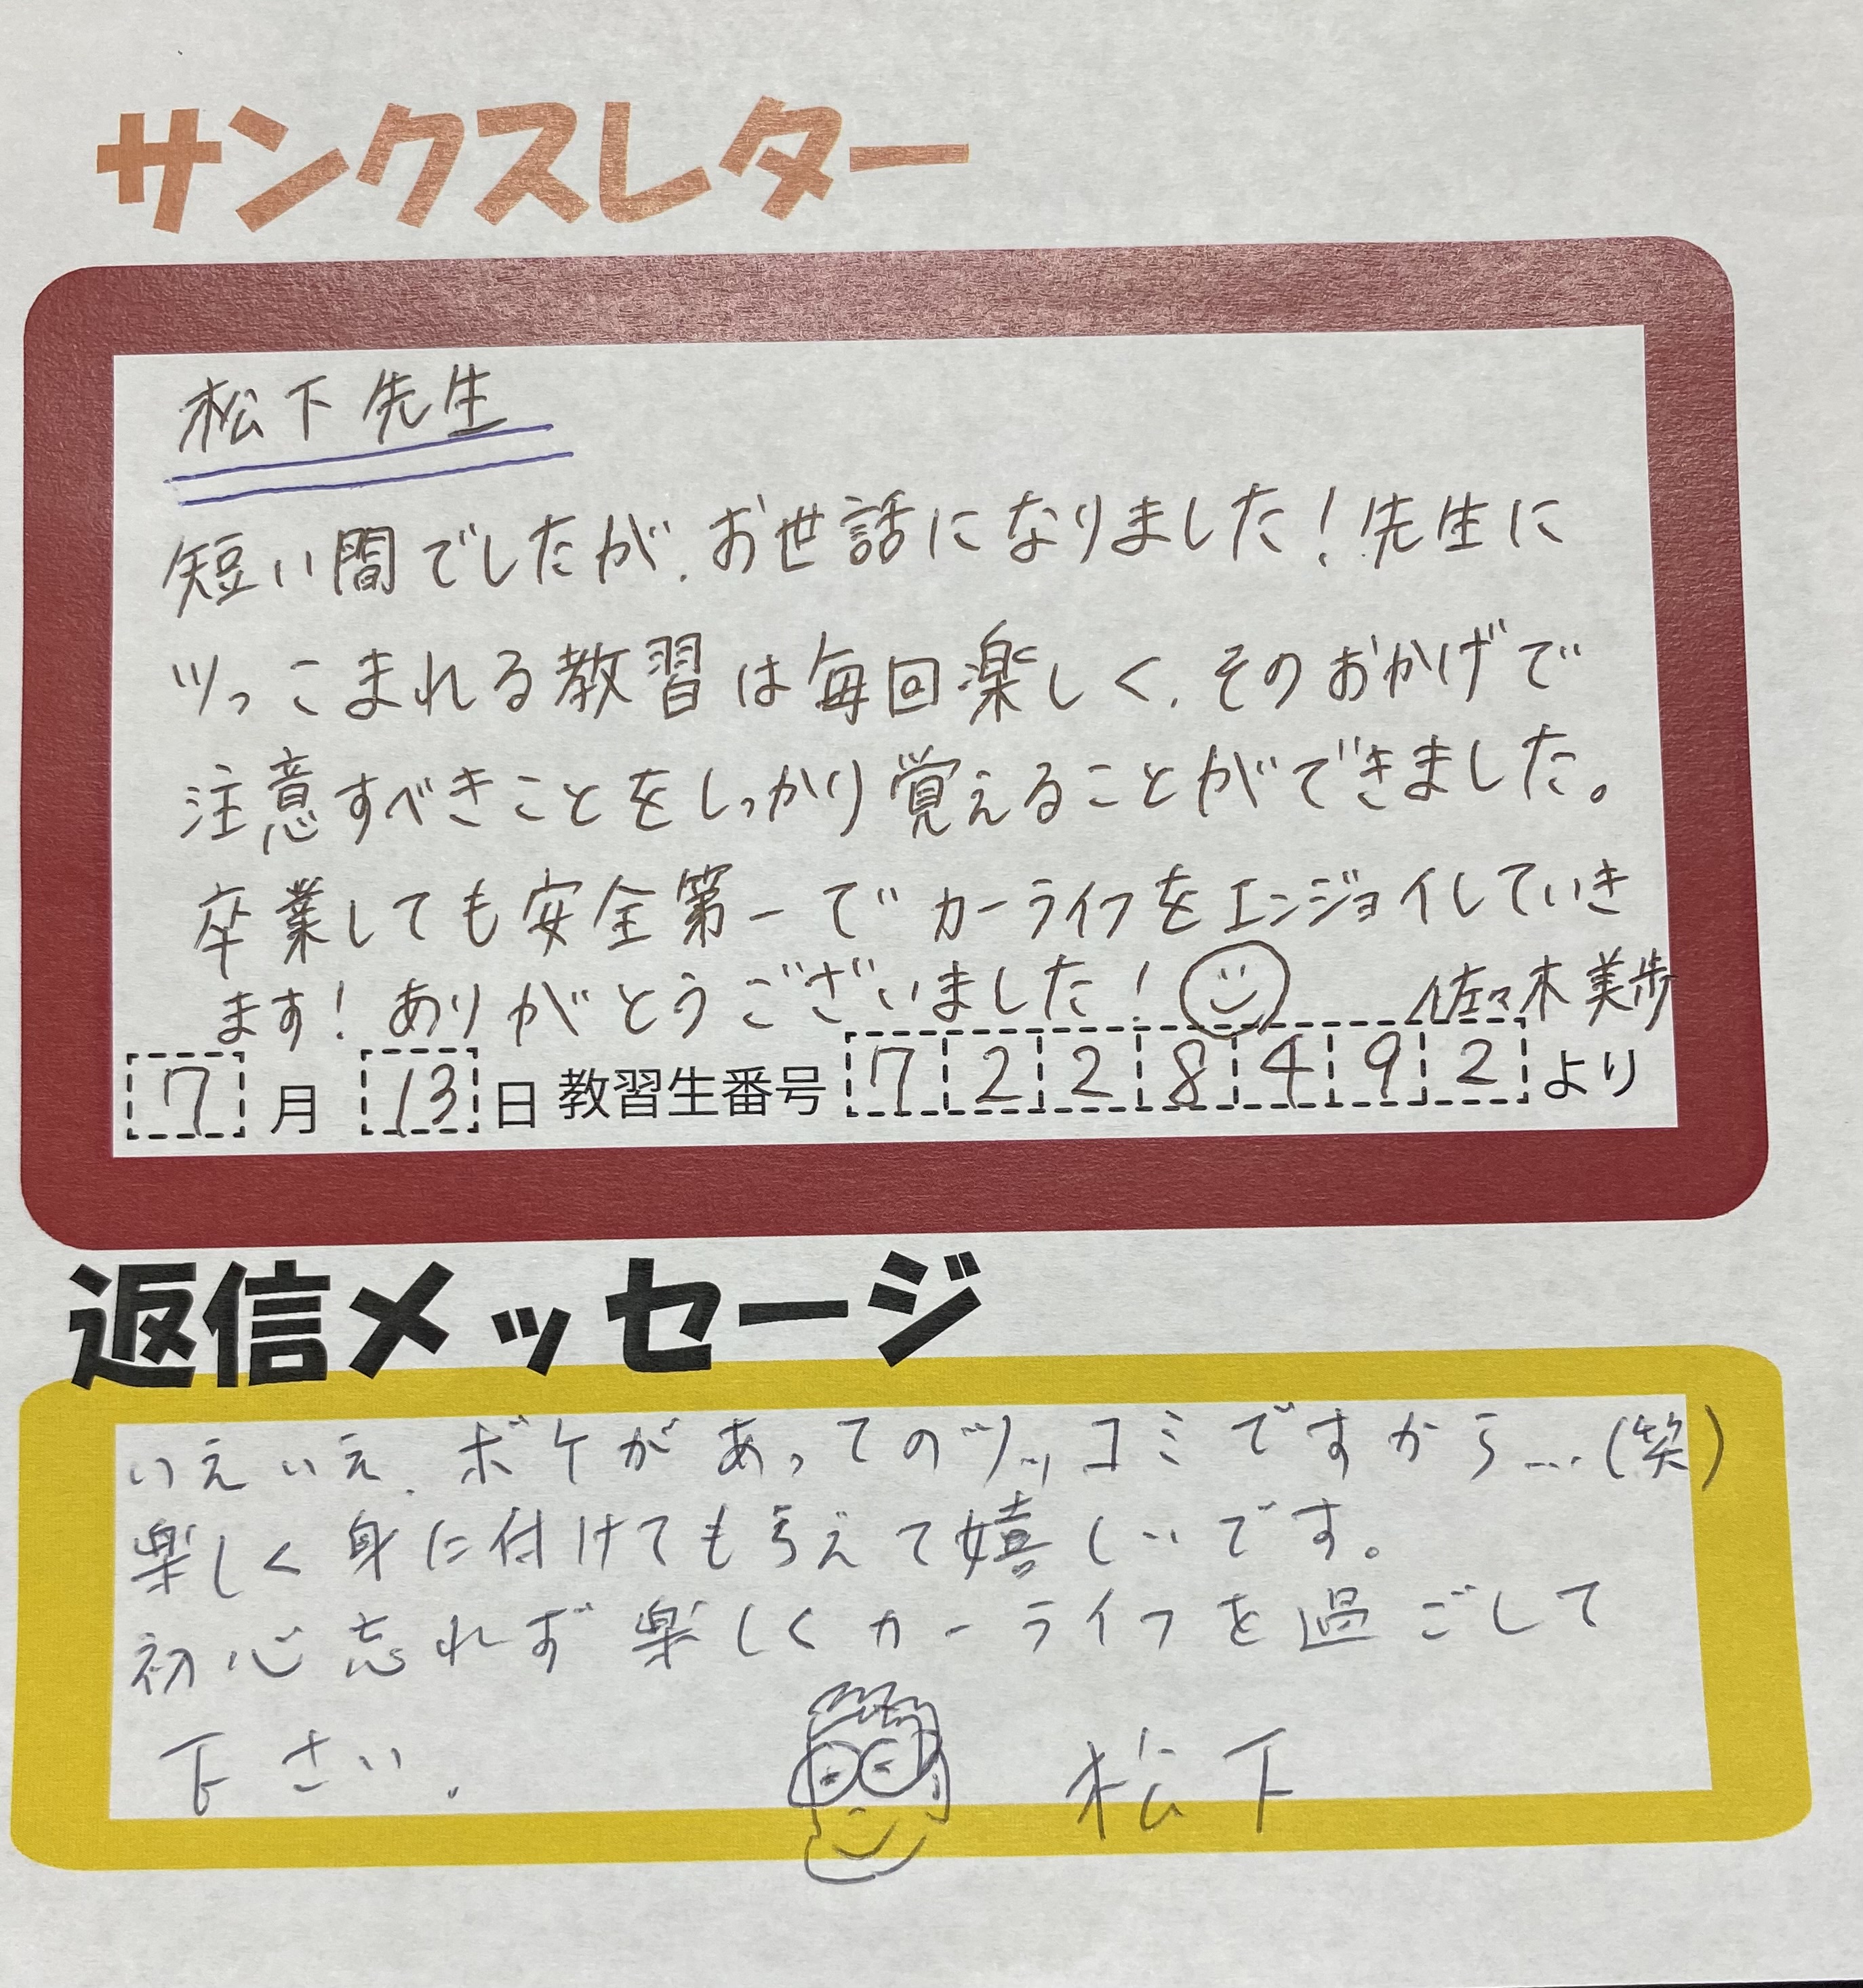 サンクスレター
松下先生
短い間でしたが、お世話になりました！先生に
ツっこまれる教習は毎回楽しく、そのおかげで
注意すべきことをしっかり覚えることができました。
卒業しても安全第一でカーライフをエンジョイしていき
ます！ありがとうございました！ 佐々木美歩
7月13日 教習生番号 7228492より
返信メッセージ
いえいえ、ボケがあってのツッコミですから…(笑)
楽しく身に付けてもらえて嬉しいです。
初心忘れず楽しくカーライフを過ごして
下さい。 松下